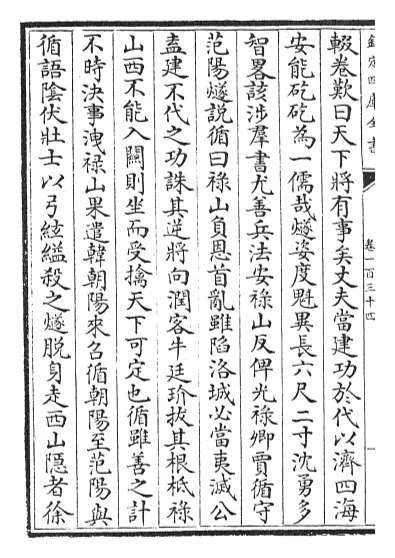 欽定四庫全書
卷一百三十四
輟卷歎曰天下將有事矣丈夫當建功於代以濟四海
安能矻矻為一儒哉燧姿度魁異長六尺二寸沈勇多
智畧該涉羣書尤善兵法安祿山反俾光祿卿賈循守
范陽燧說循曰祿山負恩首亂雖陷洛城必當夷滅公
盍建不代之功誅其逆將向潤客牛廷玠拔其根柢祿
山西不能入關則坐而受擒天下可定也循雖善之計
不時決事洩祿山果遣韓朝陽來召循朝陽至范陽與
循語陰伏壯士以弓絃縊殺之燧脱身走西山隱者徐